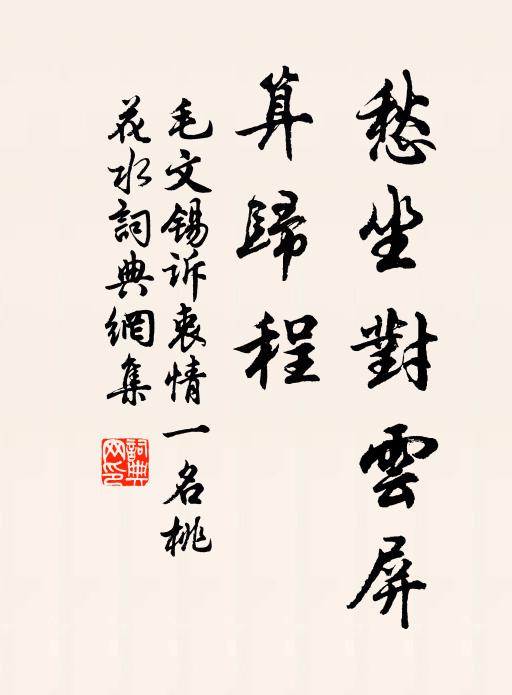 愁坐對雲屏
算歸程
毛文錫訴衷情一名桃
花水詞典網集
詞典
网印